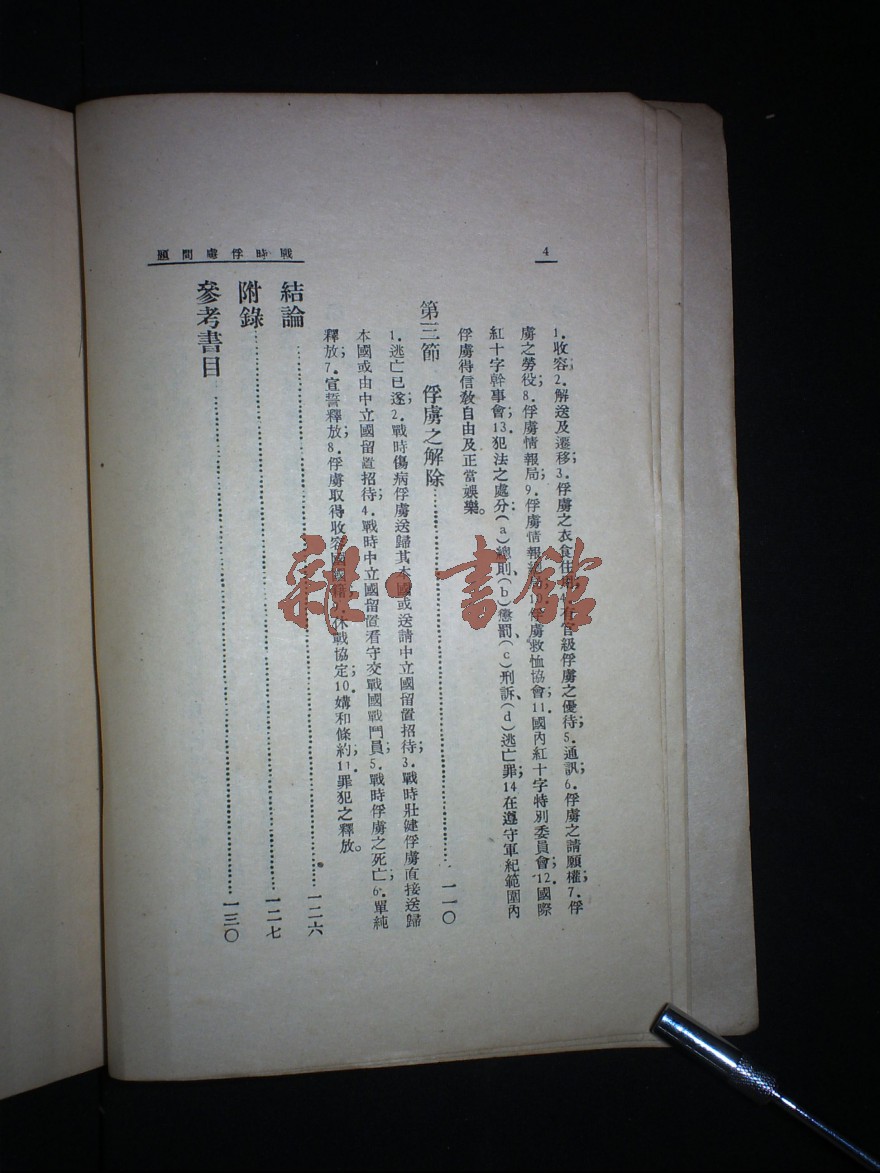 4
戰時俘虜問題
1.收容；2.解送及遷移；3.俘虜之衣食住用；4.有官級俘虜之優待；5.通訊；6.俘虜之請願權；7.俘
虜之勞役；8.俘虜情報局；9.俘虜情報總局；10.俘虜救恤協會；11.國內紅十字特別委員會；12.國際
紅十字幹事會；13.犯法之處分：(a)總則、(b)懲罰、(c)刑訴、(d)逃亡罪；14在遵守軍紀範圍內
俘虜得信敎自由及正當娛樂。
第三節 俘虜之解除……一一〇
1.逃亡已遂；2.戰時傷病俘虜送歸其本國或送請中立國留置招待；3.戰時壯健俘虜直接送歸
本國或由中立國留置招待；4.戰時中立國留置看守交戰國戰鬥員；5.戰時俘虜之死亡；6.單純
釋放；7.宣誓釋放；8.俘虜取得收容國國籍；9.休戰協定；10.媾和條約；11.罪犯之釋放。
結論……一二六
附錄……一二七
參考書目……一三〇
雜·書館